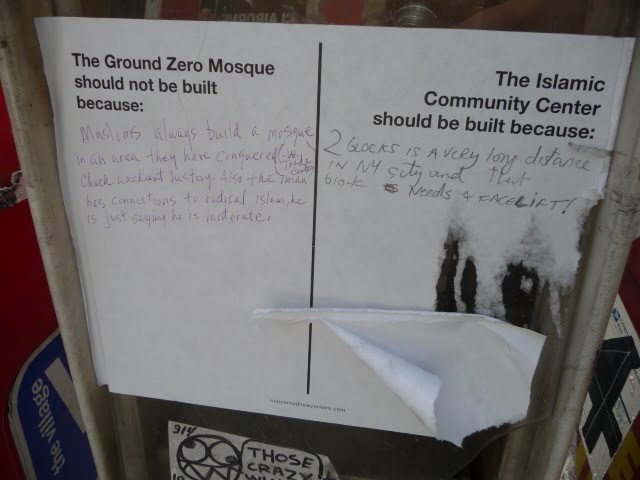 The Ground Zero Mosque
should not be built
because:
Muslims always build a mosque
in an area they have conquered
Check anchient history. Also the Iman
has connections to radical islam, he
is just saying he is moderate.
The Islamic
Community Center
should be built because:
2 BLOCKS IS A VERY long distance
IN NY city and that
block NEEDS A FACELIFT!
the village
314
THOSE
CRAZY